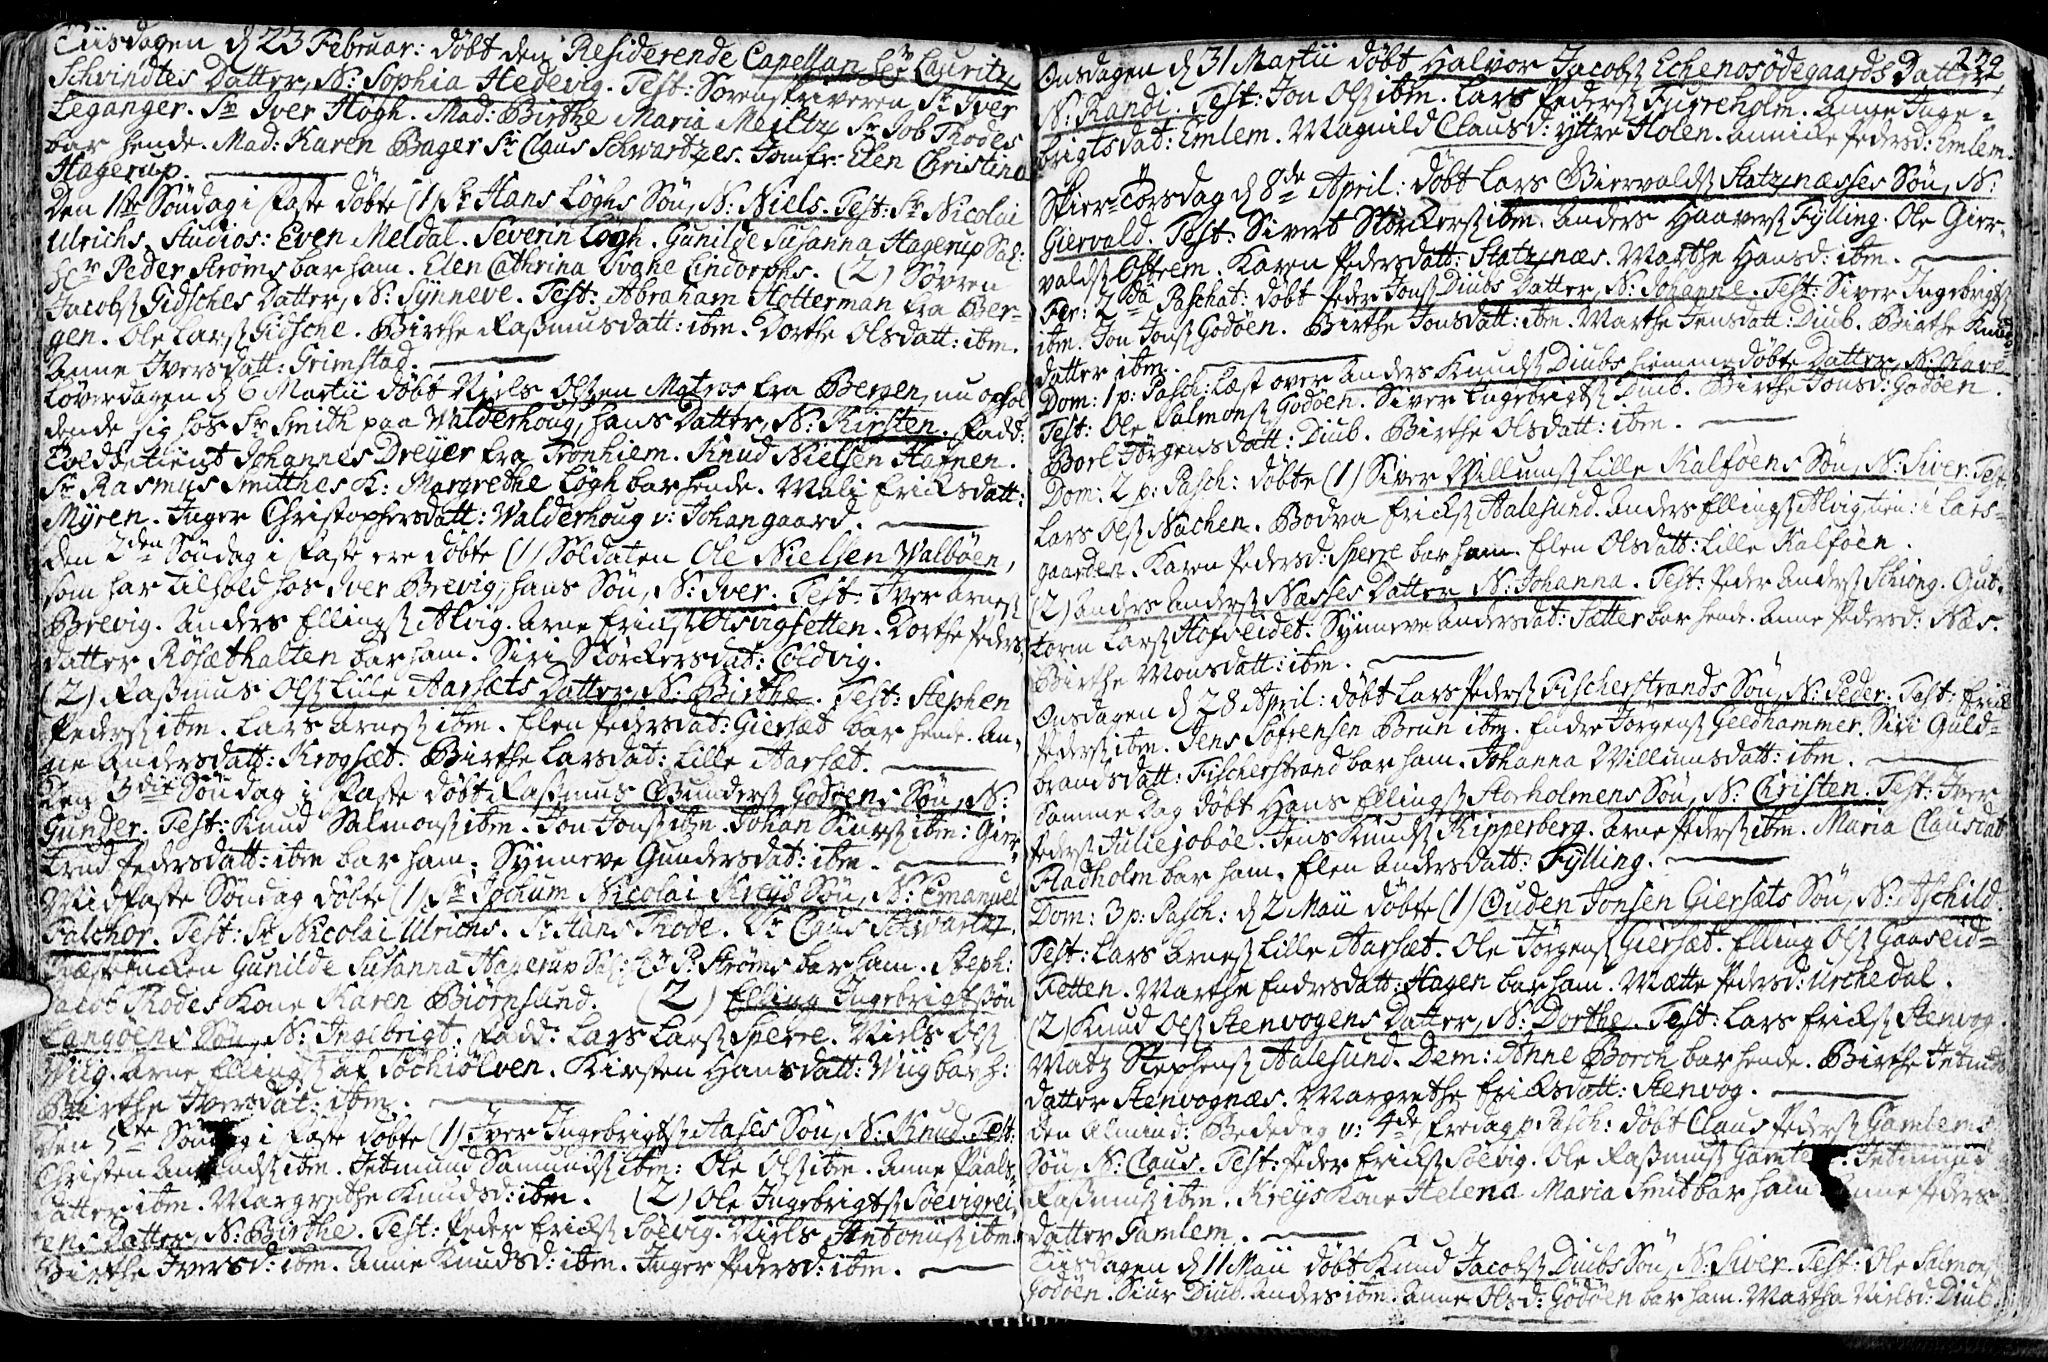 Tiisdagen d 23 Februar: döbt den Residerende Capellan Hr Lauritz
Schvindtes Datter, N: Sophia Hedevig. Test: Sorenskriveren, Sr Iver
Leganger. Sr Iver Högh. Mad: Birthe Maria Meiltz Sr Job Thodes
bar hende. Mad: Karen Bager Sr Claus Schwartzes. Jomfr: Elen Christina
Hagerup.
Den 1ste Söndag i Faste döbte (1) Sr Hans Löghs Sön, N: Niels. Test: Sr Nicolai
Ulrichs. Studios: Even Meldal. Severin Lögh. Gunilde Susanna Hagerup Sal:
Hr Peder Ströms bar ham. Elen Cathrina Svane Lindorphs. (2) Sörren
Jacobsz Gidsches Datter, N: Synneve. Test: Abraham Hotterman fra Ber-
gen. Ole Larsz Gidsche. Birthe Rasmusdatt: ibm. Dorthe Olsdatt: ibm.
Anne Iversdatt: Grimstad.
Löverdagen d 6 Martii döbt Niels Olsen Matros fra Bergen, nu ophol
dende sig hos Sr Smith paa Walderhoug, hans Datter, N: Kirsten. Fadd:
Toldbetient Johannes Dreyer fra Tronhiem. Knud Nielsen Hafnen.
Sr Rasmus Smitthes K: Margrethe Lögh bar hende. Mali Ericksdatt:
Myren. Inger Christophersdatt: Walderhoug v: Johangaard.
Den 2den Söndag i Faste ere döbte (1) Soldaten Ole Nielsen Walböen,
som har tilhold hos Iver Brevig, hans Sön, N: Iver. Test. Iver Arnesz
Brevig. Anders Ellingsz Alvig. Arne Ericksz Alvigsetten. Dorthe Peders-
datter Rösæthalten bar ham. Siri Störckersdat: Coldvig.
(2) Rasmus Olsz Lille Aarsæts Datter, N: Birthe. Test: Stephen
Pedersz ibm. Lars Arnesz ibm. Elen Pedersdat: Giersæt bar hende. An-
ne Andersdatt: Krogsæt. Birthe Larsdat: Lille Aarsæt.
Den 3die Söndag i Faste döbt Rasmus Gundersz Godöens Sön, N:
Gunder. Test: Knud Salmonsz ibm. Jon Jonsz ibm. Johan Siursz ibm: Gier-
trud Pedersdatt: ibm bar ham. Synneve Gundersdat: ibm.
Midfaste Söndag döbte (1) Sr Jochum Nicolai Kreÿs Sön, N: Emanuel
Falchor. Test: Sr Nicolai Ulrichs. Sr Hans Thode. Sr Claus Schwartz.
Gunilde Susanna Hagerup Sal: Hr P: Ströms bar ham. Steph:
Jacob Rodes Kone Karen Biörnsund. (2) Elling Ingebrigtssön
Langöens Sön, N: Ingebrigt. Fadd: Lars Larsz Sperre. Niels Olsz
Wiig. Arne Ellingsz af Söchiölven. Kirsten Hansdatt: Wiig bar h:
Birthe Iversdat: ibm.
Den 5te Söndag i Faste döbte (1) Iver Ingebrigtsz Aases Sön, N: Knud. Test:
Christen Amundsz ibm. Jetmund Samundsz ibm: Ole Olsz ibm. Anne Paals-
datter ibm. Margrethe Knudsd: ibm. (2) Ole Ingebrigtsz Soevigrei-
tens Datter, N: Birthe. Test: Peder Ericksz Soevig. Niels Antoniisz ibm.
Birthe Iversd: ibm. Anne Knudsd: ibm. Inger Pedersd: ibm.
239
Onsdagen d 31 Martii döbt Halvor Jacobsz Echenosödegaards Datter,
N: Randi. Test: Jon Olsz ibm. Lars Pedersz Fugreholm. Anne Inge-
brigtsdat: Emlem. Magnild Clausd: yttre Holen. Annike Pedersd: Emlem.
Skier-Torsdag d 8de April: döbt Lars Giervaldsz Slatznæsses Sön, N:
Giervald. Test: Sivert Störckersz ibm. Anders Haaversz Fylling. Ole Gier-
valdsz Ostrem. Karen Pedersdatt: Slatznæs. Marthe Hansd: ibm.
Fer: 2da Paschat: döbt Peder Jonsz Diubs Datter, N: Johanne. Test: Siver Ingebrigtsz
ibm. Jon Jonsz Godöen. Birthe Jonsdatt: ibm. Marthe Jensdatt: Diub. Birthe Knuds-
datter ibm.
Dom: 1 p: Pasch: læst over Anders Knudsz Diubs hiemmedöbte Datter, N: Olave.
Test: Ole Salmonsz Godöen. Siver Ingebrigtsz Diub. Birthe Jonsd: Godöen.
Borl Jörgensdatt: Diub. Birthe Olsdatt: ibm.
Dom: 2 p: Pasch: döbte (1) Siver Willumsz Lille Kalföens Sön, N: Siver. Test:
Lars Olsz Nochen. Bodva Ericksz Aalesund. Anders Ellingsz Alvig tien: i Lars-
gaarden. Karen Pedersd: Sperre bar ham. Elen Olsdatt: Lille Kalföen.
(2) Anders Andersz Næsses Datter N: Johanna. Test: Peder Andersz Schiong. Gut-
torm Larsz Hofseidet. Synneve Andersdat: Sætter bar hende. Anne Pedersd: Næs.
Birthe Monsdatt: ibm.
Onsdagen d 28 April: döbt Lars Pedersz Fischerstrands Sön, N: Peder. Test: Erick
Pedersz ibm. Jens Söfrensen Brun ibm. Endre Jörgensz Geedhammer. Siri Guld-
brandsdatt: Fischerstrand bar ham. Johanna Willumsdatt: ibm.
Samme Dag döbt Hans Ellingsz Storholmens Sön, N: Christen. Test: Iver
Pedersz Juliejoböe. Jens Knudsz Kipperberg. Arne Pedersz ibm. Maria Clausdat
Fladholm bar ham. Elen Andersdatt: Fylling.
Dom: 3 p: Pasch: d 2 Maii döbte (1) Ouden Jonsen Giersæts Sön, N: Aschild.
Test: Lars Arnesz Lille Aarsæt. Ole Jörgensz Giersæt. Elling Olsz Gaaseid-
Tetten. Marthe Endresdatt: Hagen bar ham. Mætte Pedersd: Urchedal.
(2) Knud Olsz Stenvogens Datter, N: Dorthe. Test: Lars Ericksz Stenvog.
Matz Stephensz Aalesund. Dem: Anne Borch bar hende. Birthe Jetmunds
datter Stenvognæs. Margrethe Ericksdatt: Stenvog.
Den Almind: Bededag v: 4de Fredag p: Pasch: döbt Claus Pedersz Gamlems
Sön, N: Claus. Test: Peder Ericksz Soevig. Ole Rasmusz Gamlem. Jetmund
Rasmusz ibm. Kreÿs Kone Helena Maria Smit bar ham. Anne Peders
datter Gamlem.
Tiisdagen d 11 Maii döbt Knud Jacobsz Diubs Sön, N: Siver. Test: Ole Salmons
Godöen. Siur Diub. Anders ibm. Anne Olsd: Godöen bar ham. Martha Nielsd: Diub.